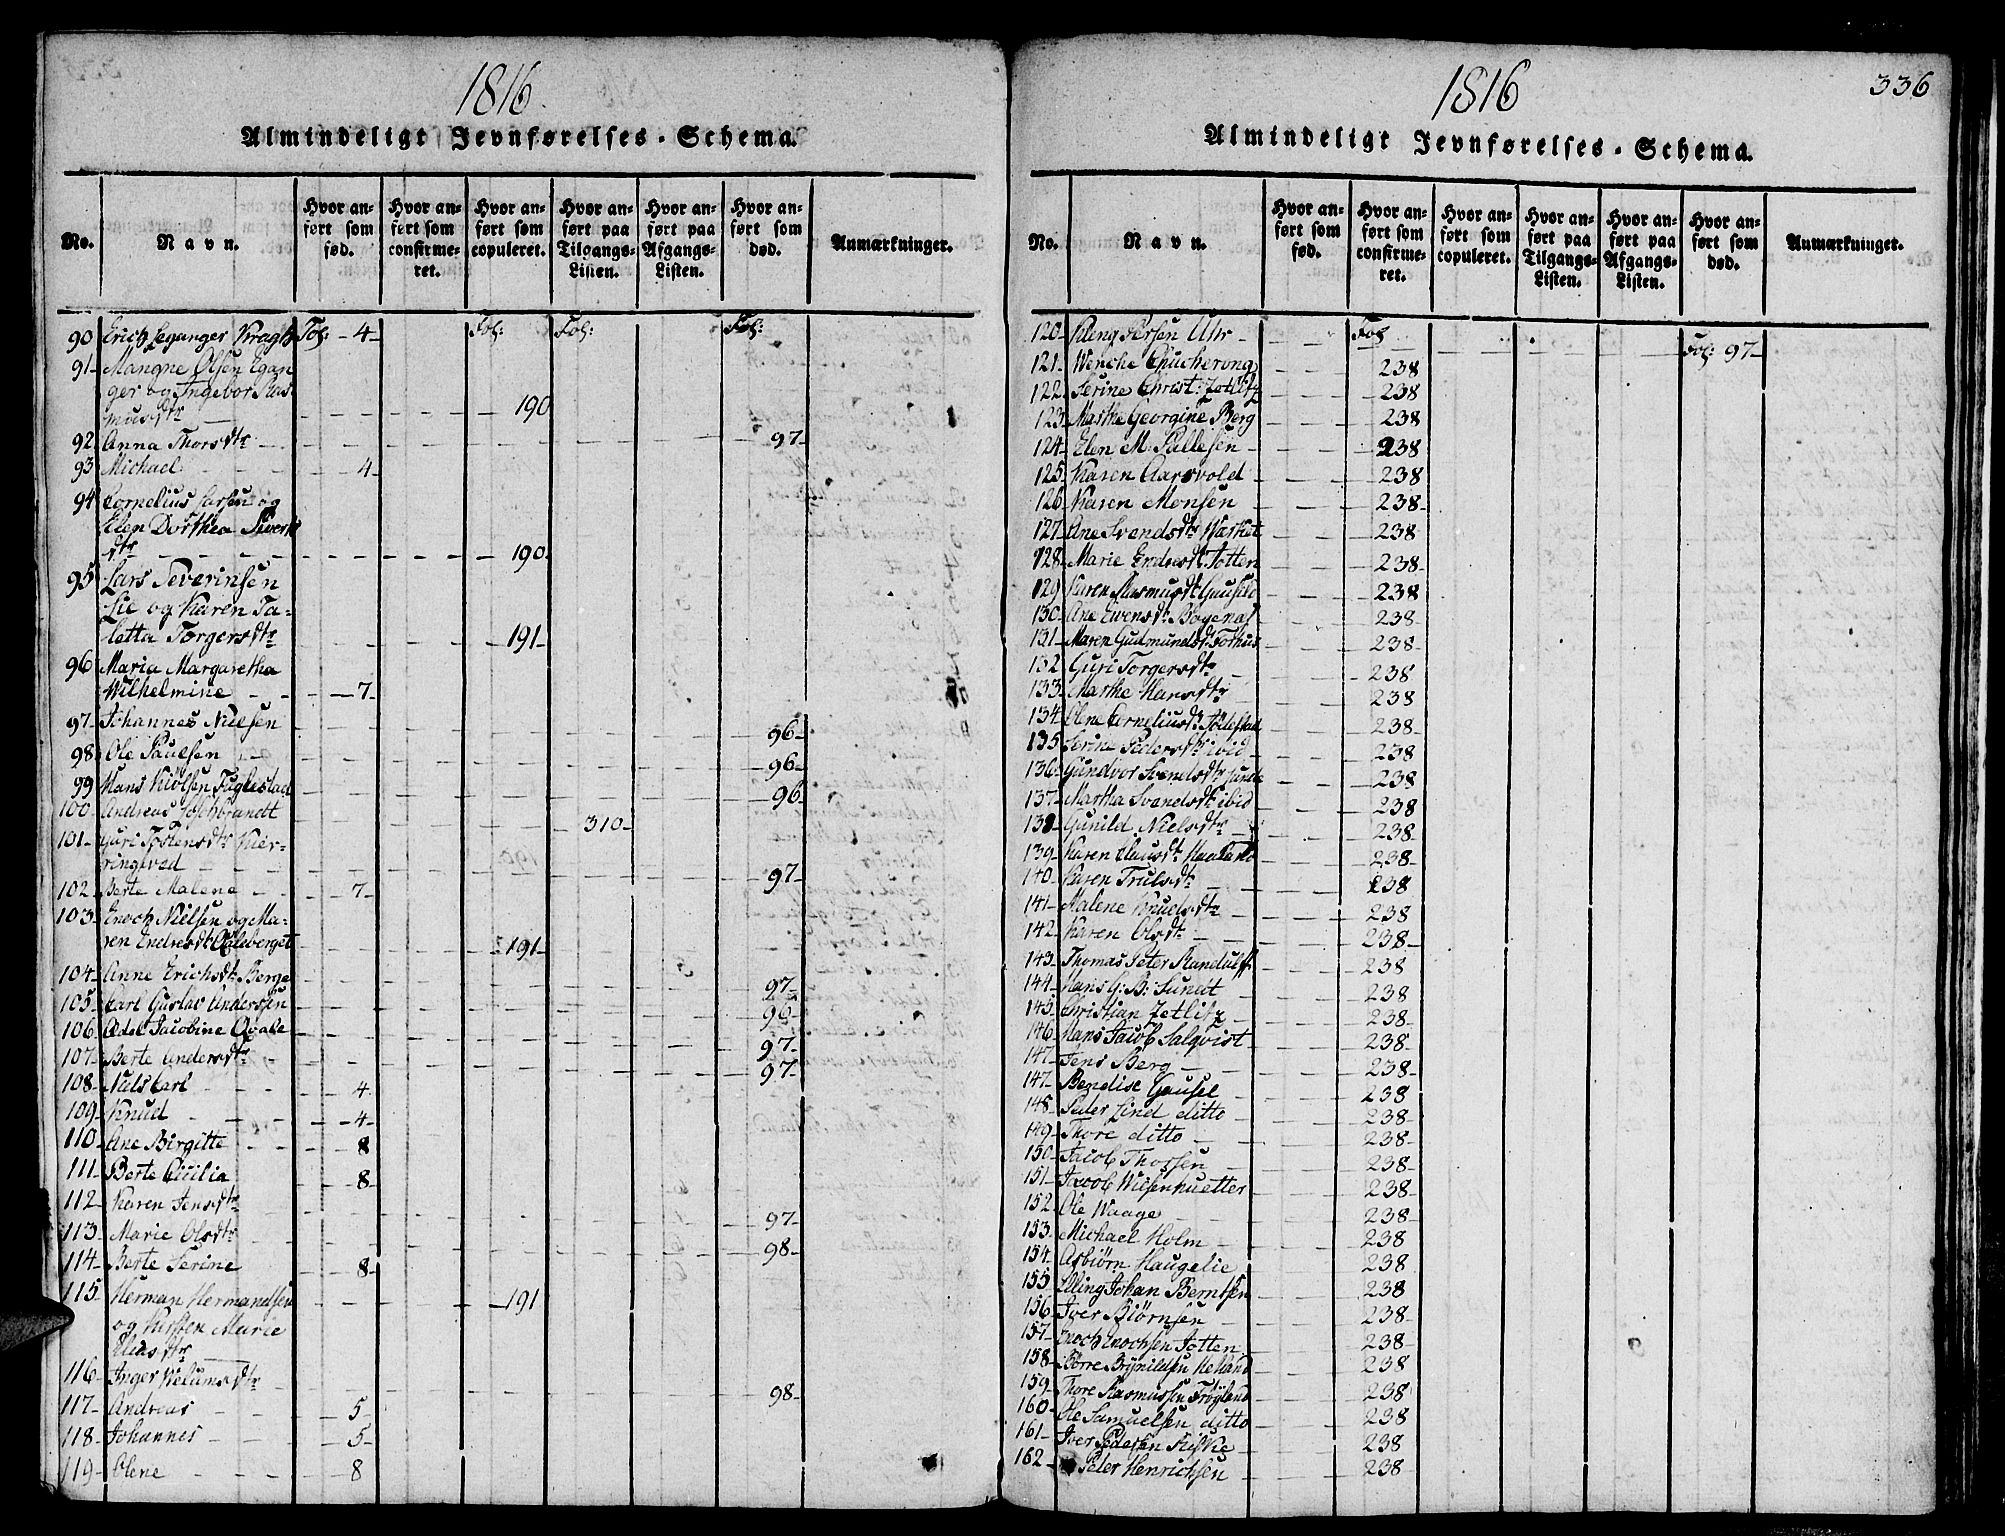 1816.
Almindeligt Jevnførelses-Schema.
No.
Navn.
Hvor anført som fød.
Hvor anført som confirmeret.
Hvor anført som copuleret.
Hvor anført paa Tilgangs-Listen.
Hvor anført paa Afgangs-Listen.
Hvor anført som død.
Anmærkninger.
90 Erich Leganger Kragh Fol: 4 Fol: Fol: Fol:
91 Mangne Olsen Egan
ger og Ingebor Ras
musdtr 190
92 Anna Thorsdtr 97
93 Michael 4
94 Cornelius Larsen og
Elen Dorthea Siverts
dtr 190
95 Lars Severinsen
Lie og Karen Ta-
letta Torgersdtr 191
96 Maria Margaretha
Wilhelmine 7
97 Johannes Nielsen 96
98 Ole Paulsen 96
99 Hans Kiölsen Fuglestad 96
100 Andreas 310
101 Guri Tostensdtr Kier-
ringevad 97
102 Berte Malene 7
103 Enoch Nielsen og Ma-
ren Endresdtr 191
104 Anne Erichsdtr Berge 97
105 Carl Gustav Andersen 96
106 Adel Jacobine Qvale 97
107 Berte Andersdtr 97
108 Niels Carl 4
109 Knud 4
110 Ane Birgitte 8
111 Berte Cicilia 8
112 Karen Jensdtr 97
113 Marie Olsdtr 98
114 Berte Serine 8
115 Herman Hermandsen 191
og Kirsten Marie
Eliasdtr
116 Inger Welumsdtr 98
117 Andreas 5
118 Johannes 5
119 Olene 8
1816
336
Almindeligt Jevnførelses-Schema.
No.
Navn.
Hvor anført som fød.
Hvor anført som confirmeret.
Hvor anført som copuleret.
Hvor anført paa Tilgangs-Listen.
Hvor anført paa Afgangs-Listen.
Hvor anført som død.
Anmærkninger.
120 Kleng Fol Fol: 97
121 Wenche 238
122 Serine Christ: Zetlitz 238
123 Marthe Georgine Berg 238
124 Elen M: Pallesen 238
125 Karen Aarsvold 238
126 Karen Monsen 238
127 Ane Svendsdtr 238
128 Marie Endresdt Totten 238
129 Karen Rasmusdt Gausele 238
130 Ane Evensdt 238
131 Maren Gudmundsdt 238
132 Guri Torgersdtr 238
133 Marthe Hansdtr 238
134 Olene Corneliusdt 238
135 Serine Pedersdtr ibid 238
136 Gundvor Svendsdtr Sunde 238
137 Martha Svendsdt ibid 238
138 Gunild Nielsdtr 238
139 Karen 238
140 Karen Trulsdtr 238
141 Malene Knudsdtr 238
142 Karen Olsdtr 238
143 Thomas Peter Randulff 238
144 Hans G: B: Sundt 238
145 Christian Zetlitz 238
146 Hans Jacob Salqvist 238
147 Jens Berg 238
147 Bendise Gausel 238
148 Peder Lind ditto 238
149 Thore ditto 238
150 Jacob Thorsen 238
151 Jacob 238
152 Ole Waage 238
153 Michael Holm 238
154 Asbiörn Haugelie 238
155 Elling Johan Berntsen 238
156 Iver Biörnsen 238
157 Enoch Enochsen Totten 238
158 Börre Brynildsen 238
159 Thore Rasmussen Fröyland 238
160 Ole Samuelsen ditto 238
161 Iver Pedersen 238
162 Peder Henrichsen 238